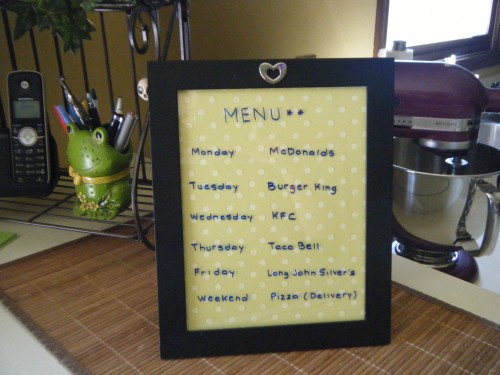 MENU**
Monday McDonalds
Tuesday Burger King
Wednesday KFC
Thursday Taco Bell
Friday Long John Silver's
Weekend Pizza (Delivery)